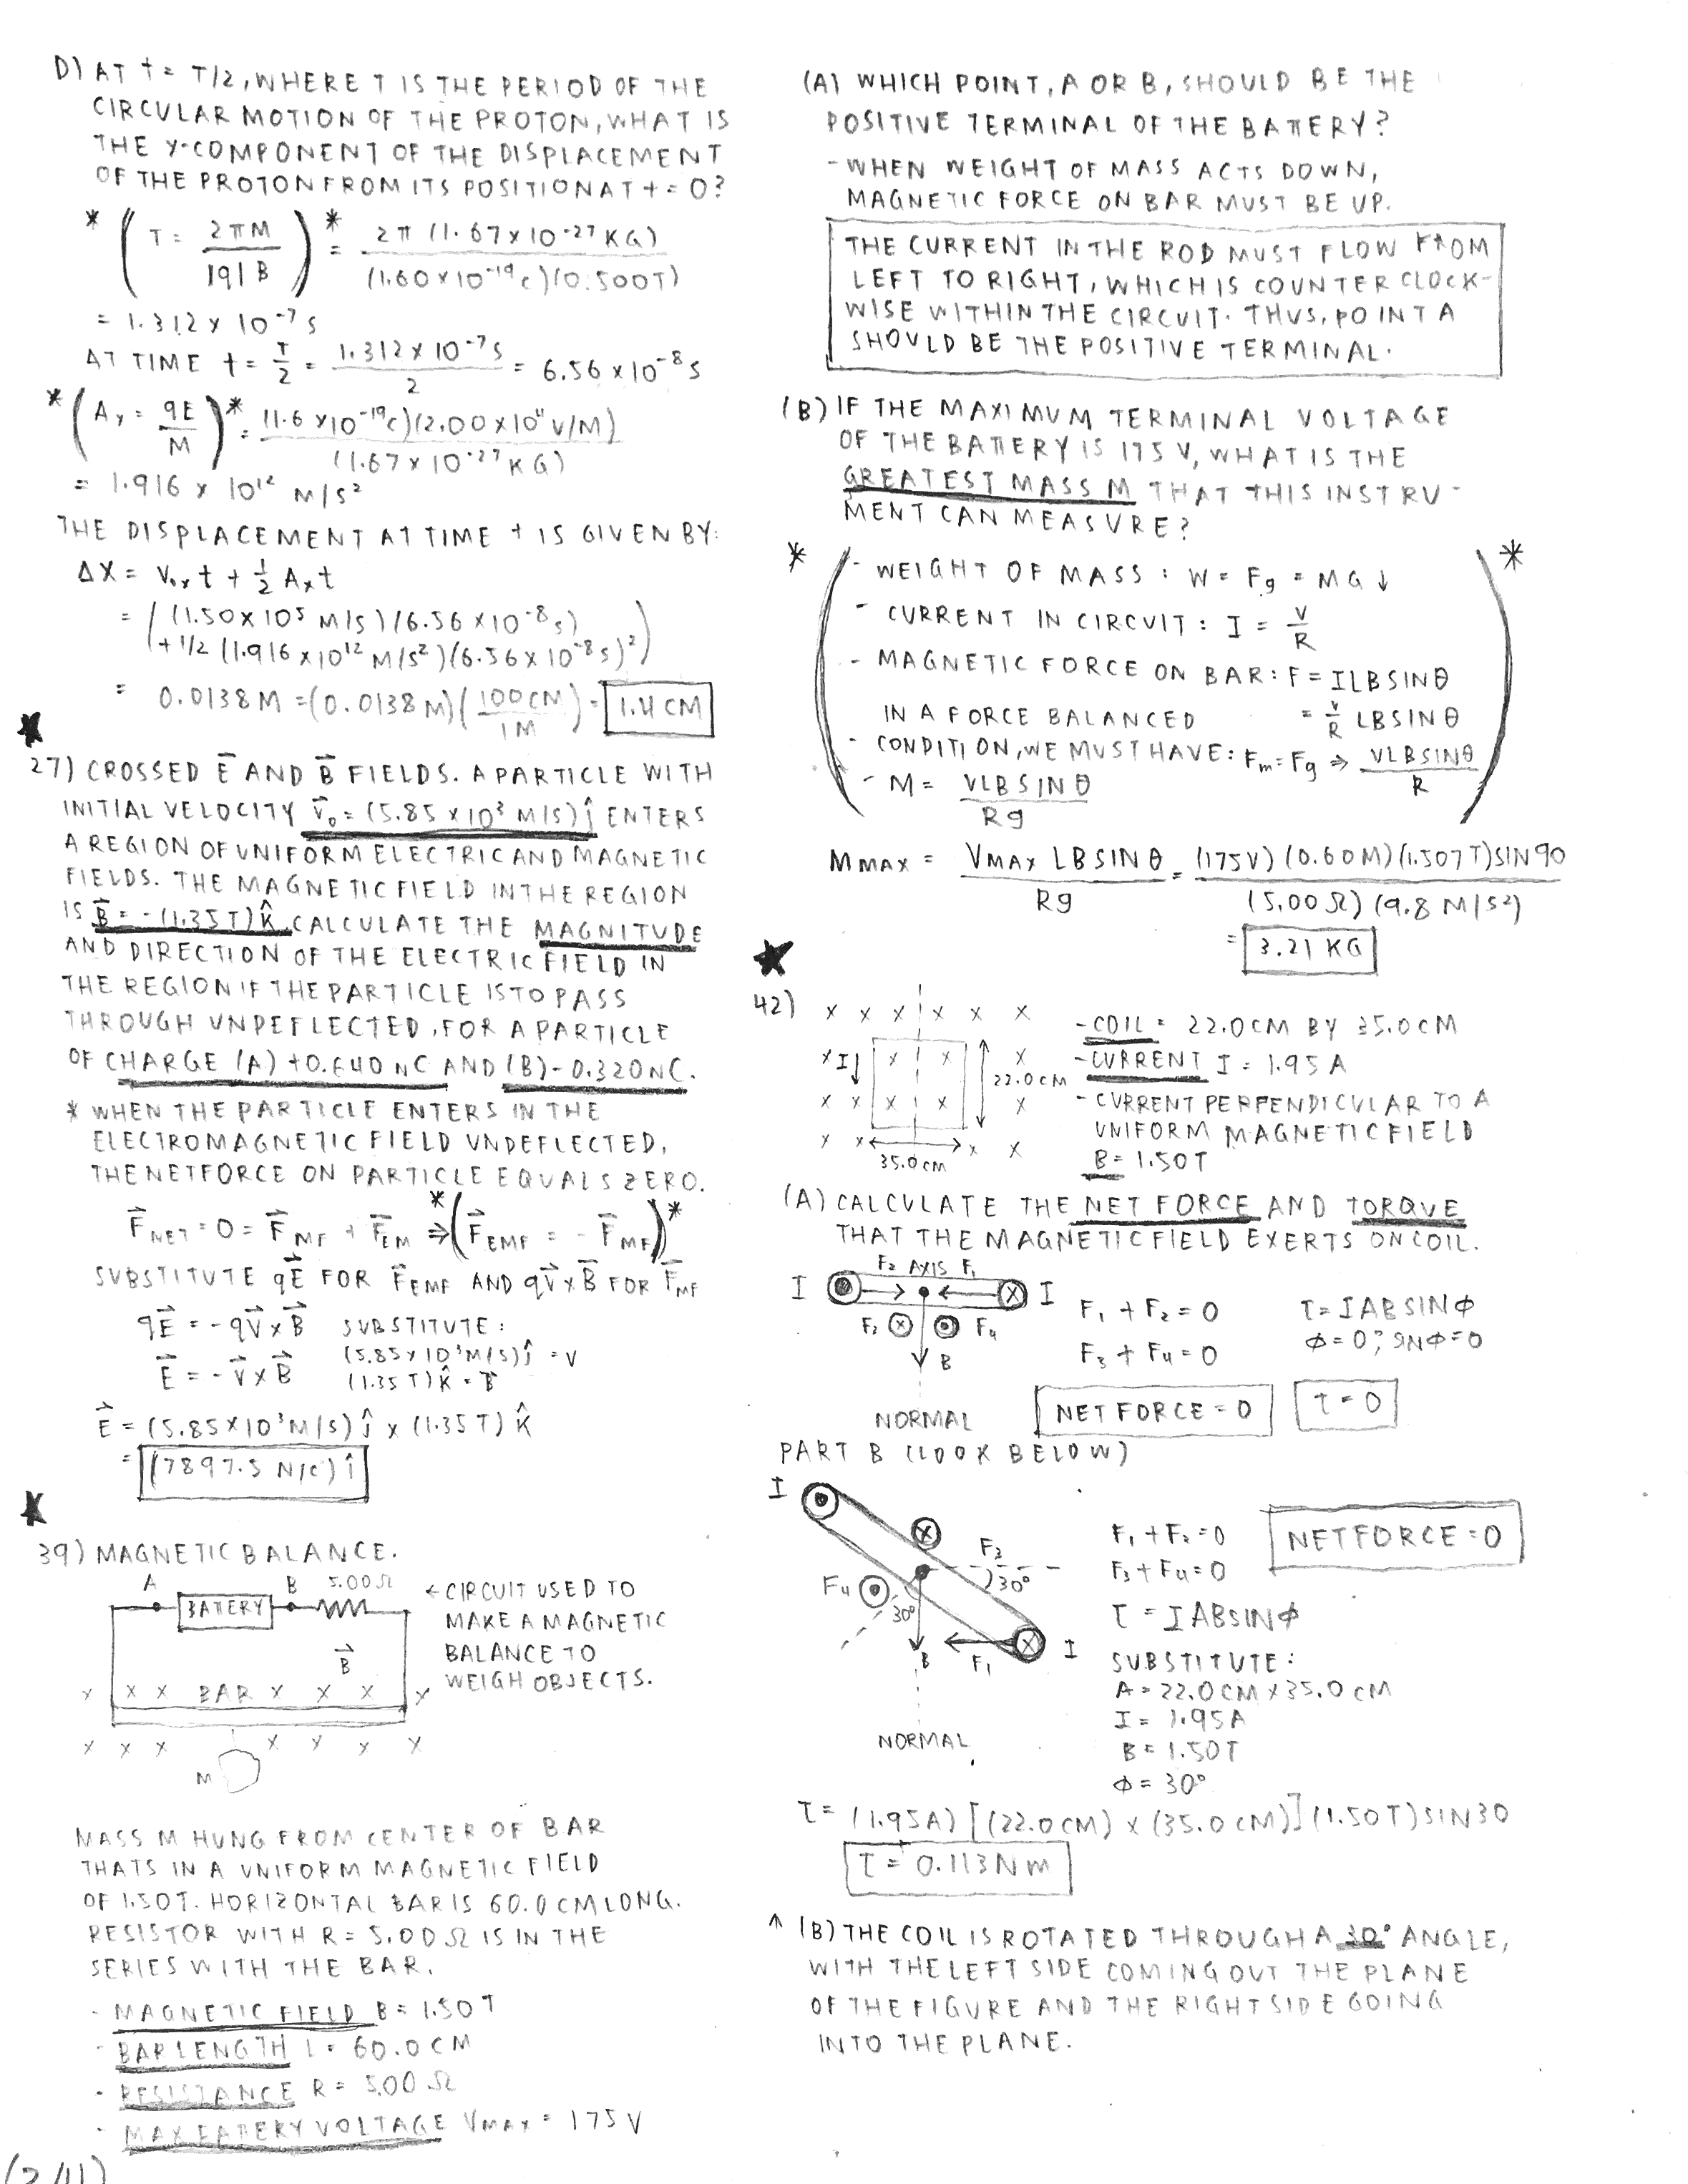 D) AT t = T/2, WHERE T IS THE PERIOD OF THE
CIRCULAR MOTION OF THE PROTON, WHAT IS
THE X-COMPONENT OF THE DISPLACEMENT
OF THE PROTON FROM ITS POSITION AT t = 0?
* ( T = 2πM / |q|B ) * = 2π (1.67 x 10^-27 KG) / (1.60 x 10^-19 C)(0.500T)
= 1.312 x 10^-7 S
AT TIME t = T/2 = 1.312 x 10^-7 S / 2 = 6.56 x 10^-8 S
* ( Ax = qE / M ) * = (1.6 x 10^-19 C)(2.00 x 10^4 V/M) / (1.67 x 10^-27 KG)
= 1.916 x 10^12 M/S²
THE DISPLACEMENT AT TIME t IS GIVEN BY:
ΔX = V₀x t + 1/2 Ax t
= ( (1.50 x 10^5 M/S)(6.56 x 10^-8 S)
+ 1/2 (1.916 x 10^12 M/S²)(6.56 x 10^-8 S)² )
= 0.0138 M = (0.0138 M)(100 CM / 1 M) = 1.4 CM
★
27) CROSSED E⃗ AND B⃗ FIELDS. A PARTICLE WITH
INITIAL VELOCITY v⃗₀ = (5.85 x 10³ M/S) ĵ ENTERS
A REGION OF UNIFORM ELECTRIC AND MAGNETIC
FIELDS. THE MAGNETIC FIELD IN THE REGION
IS B⃗ = -(1.35T) K̂. CALCULATE THE MAGNITUDE
AND DIRECTION OF THE ELECTRIC FIELD IN
THE REGION IF THE PARTICLE IS TO PASS
THROUGH UNDEFLECTED, FOR A PARTICLE
OF CHARGE (A) +0.640 NC AND (B) -0.320 NC.
* WHEN THE PARTICLE ENTERS IN THE
ELECTROMAGNETIC FIELD UNDEFLECTED,
THE NET FORCE ON PARTICLE EQUALS ZERO.
F⃗NET = 0 = F⃗MF + F⃗EM ⇒ * ( F⃗EMF = - F⃗MF ) *
SUBSTITUTE qE⃗ FOR F⃗EMF AND qV⃗ x B⃗ FOR F⃗MF
qE⃗ = - qV⃗ x B⃗ SUBSTITUTE:
(5.85 x 10³ M/S) ĵ = V
E⃗ = - V⃗ x B⃗ (1.35 T) K̂ = B⃗
E⃗ = (5.85 x 10³ M/S) ĵ x (1.35T) K̂
= (7897.5 N/C) î
★
39) MAGNETIC BALANCE.
A B 5.00Ω
BATTERY
B⃗
x x x BAR x x x x
x x x x x x x
M
← CIRCUIT USED TO
MAKE A MAGNETIC
BALANCE TO
WEIGH OBJECTS.
MASS M HUNG FROM CENTER OF BAR
THATS IN A UNIFORM MAGNETIC FIELD
OF 1.50T. HORIZONTAL BAR IS 60.0 CM LONG.
RESISTOR WITH R = 5.00 Ω IS IN THE
SERIES WITH THE BAR.
- MAGNETIC FIELD B = 1.50 T
- BAR LENGTH L = 60.0 CM
- RESISTANCE R = 5.00 Ω
- MAX BATERY VOLTAGE VMAX = 175 V
(2/4)
(A) WHICH POINT, A OR B, SHOULD BE THE
POSITIVE TERMINAL OF THE BATTERY?
- WHEN WEIGHT OF MASS ACTS DOWN,
MAGNETIC FORCE ON BAR MUST BE UP.
THE CURRENT IN THE ROD MUST FLOW FROM
LEFT TO RIGHT, WHICH IS COUNTER CLOCK-
WISE WITHIN THE CIRCUIT. THUS, POINT A
SHOULD BE THE POSITIVE TERMINAL.
(B) IF THE MAXIMUM TERMINAL VOLTAGE
OF THE BATTERY IS 175 V, WHAT IS THE
GREATEST MASS M THAT THIS INSTRU-
MENT CAN MEASURE?
* ( - WEIGHT OF MASS: W = Fg = MG ↓ ) *
- CURRENT IN CIRCUIT: I = V/R
- MAGNETIC FORCE ON BAR: F = ILBSINθ
= V/R LBSINθ
IN A FORCE BALANCED
- CONDITION, WE MUST HAVE: Fm = Fg ⇒ VLBSINθ / R
- M = VLBSINθ / Rg
MMAX = VMAX LBSINθ / Rg = (175V)(0.60M)(1.507T)SIN90 / (5.00 Ω)(9.8 M/S²)
= 3.21 KG
★
42) x x x x x x
x I↓ x x x
x x x x x
x x x x
22.0 CM
35.0 CM
- COIL = 22.0 CM BY 35.0 CM
- CURRENT I = 1.95 A
- CURRENT PERPENDICULAR TO A
UNIFORM MAGNETIC FIELD
B = 1.50T
(A) CALCULATE THE NET FORCE AND TORQUE
THAT THE MAGNETIC FIELD EXERTS ON COIL.
F₂ AXIS F₁
I I
F₃ F₄
B
NORMAL
F₁ + F₂ = 0
F₃ + F₄ = 0
τ = IABSINϕ
ϕ = 0; SINϕ = 0
NET FORCE = 0
τ = 0
PART B (LOOK BELOW)
I
F₃
30°
F₄
30°
B F₁ I
NORMAL
F₁ + F₂ = 0
F₃ + F₄ = 0
NET FORCE = 0
τ = IABSINϕ
SUBSTITUTE:
A = 22.0 CM X 35.0 CM
I = 1.95A
B = 1.50T
ϕ = 30°
τ = (1.95A) [(22.0 CM) x (35.0 CM)] (1.50T) SIN30
τ = 0.113 Nm
↑ (B) THE COIL IS ROTATED THROUGH A 30° ANGLE,
WITH THE LEFT SIDE COMING OUT THE PLANE
OF THE FIGURE AND THE RIGHT SIDE GOING
INTO THE PLANE.